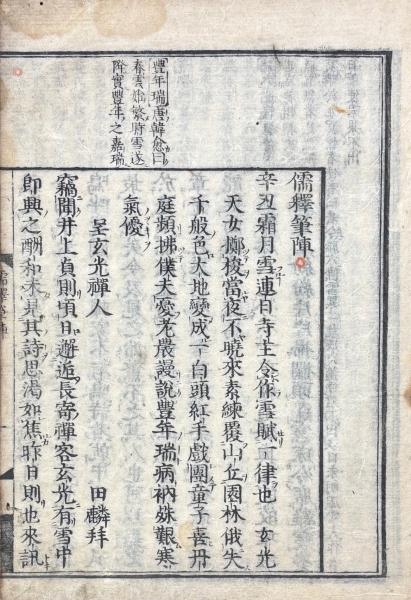 豐年瑞唐韓愈曰
春雲始繁時雪遂
降實豐年之嘉瑞
儒釋筆陣
辛丑霜月雪連日寺主令作雪賦一律也 玄光
天女擲梭當夜不曉來素練覆山丘園林俄失
千般色大地變成一白頭紅手戲團童子喜丹
庭頻拂僕夫憂老農謾說豐年瑞病衲殊艱寒
氣優
呈玄光禪人 田麟拜
竊聞井上貞則頃日邂逅長壽禪客玄光有雪中
即興之酬和未見其詩思渴如焦昨日則也來訊